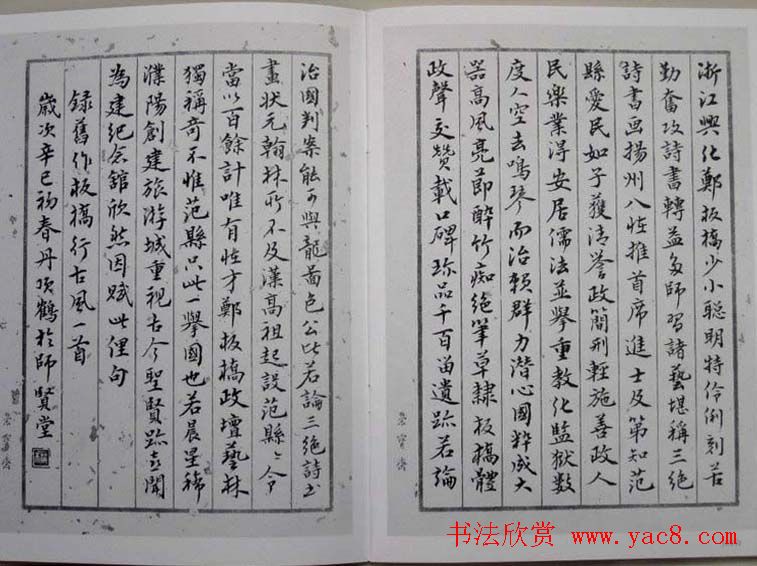 浙江興化鄭板橋少小聰明特伶俐刻苦
勤奮攻詩書轉益多師習諸藝堪稱三絶
詩書画揚州八怪推首席進士及第知范
縣愛民如子獲清譽政簡刑輕施善政人
民樂業得安居儒法並舉重教化監獄數
度人空去鳴琴而治賴群力潜心國粹成大
器高風亮節醉竹痴絶筆草隸板橋體
政聲交贊載口碑珎品千百留遺跡若論
治國判案能可與龍啚包公比若論三絶詩書
畫狀元翰林所不及漢高祖起設范縣縣令
當以百餘計唯有怪才鄭板橋政壇藝林
獨稱奇不惟范縣只此一舉國也若晨星稀
濮陽創建旅游城重視古今聖賢跡喜聞
為建纪念館欣然因賦此俚句
録舊作板橋行古風一首
歲次辛巳初春丹頂鶴於師賢堂
荣宝斋
荣宝斋
书法欣赏 www.yac8.com